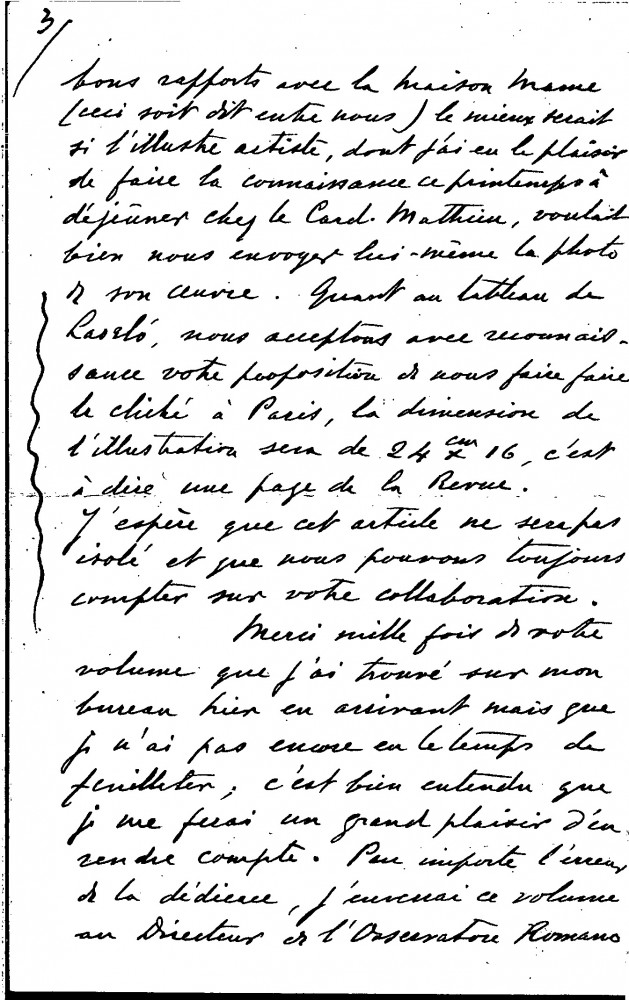 3/
bons rapports avec la maison Mame
(ceci soit dit entre nous) le mieux serait
si l'illustre artiste, dont j'ai eu le plaisir
de faire la connaissance ce printemps à
déjeûner chez le Card. Mathieu, voulait
bien nous envoyer lui-même la photo
de son œuvre. Quant au tableau de
László, nous acceptons avec reconnais-
sance votre proposition de nous faire faire
le cliché à Paris, la dimension de
l'illustration sera de 24 cm x 16, c'est
à dire une page de la Revue.
J'espère que cet article ne sera pas
isolé et que nous pouvons toujours
compter sur votre collaboration.
Merci mille fois de votre
volume que j'ai trouvé sur mon
bureau hier en arrivant mais que
je n'ai pas encore eu le temps de
feuilleter; c'est bien entendu que
je me ferai un grand plaisir d'en
rendre compte. Peu importe l'erreur
de la dédicace, j'enverrai ce volume
au Directeur de l'Osservatore Romano